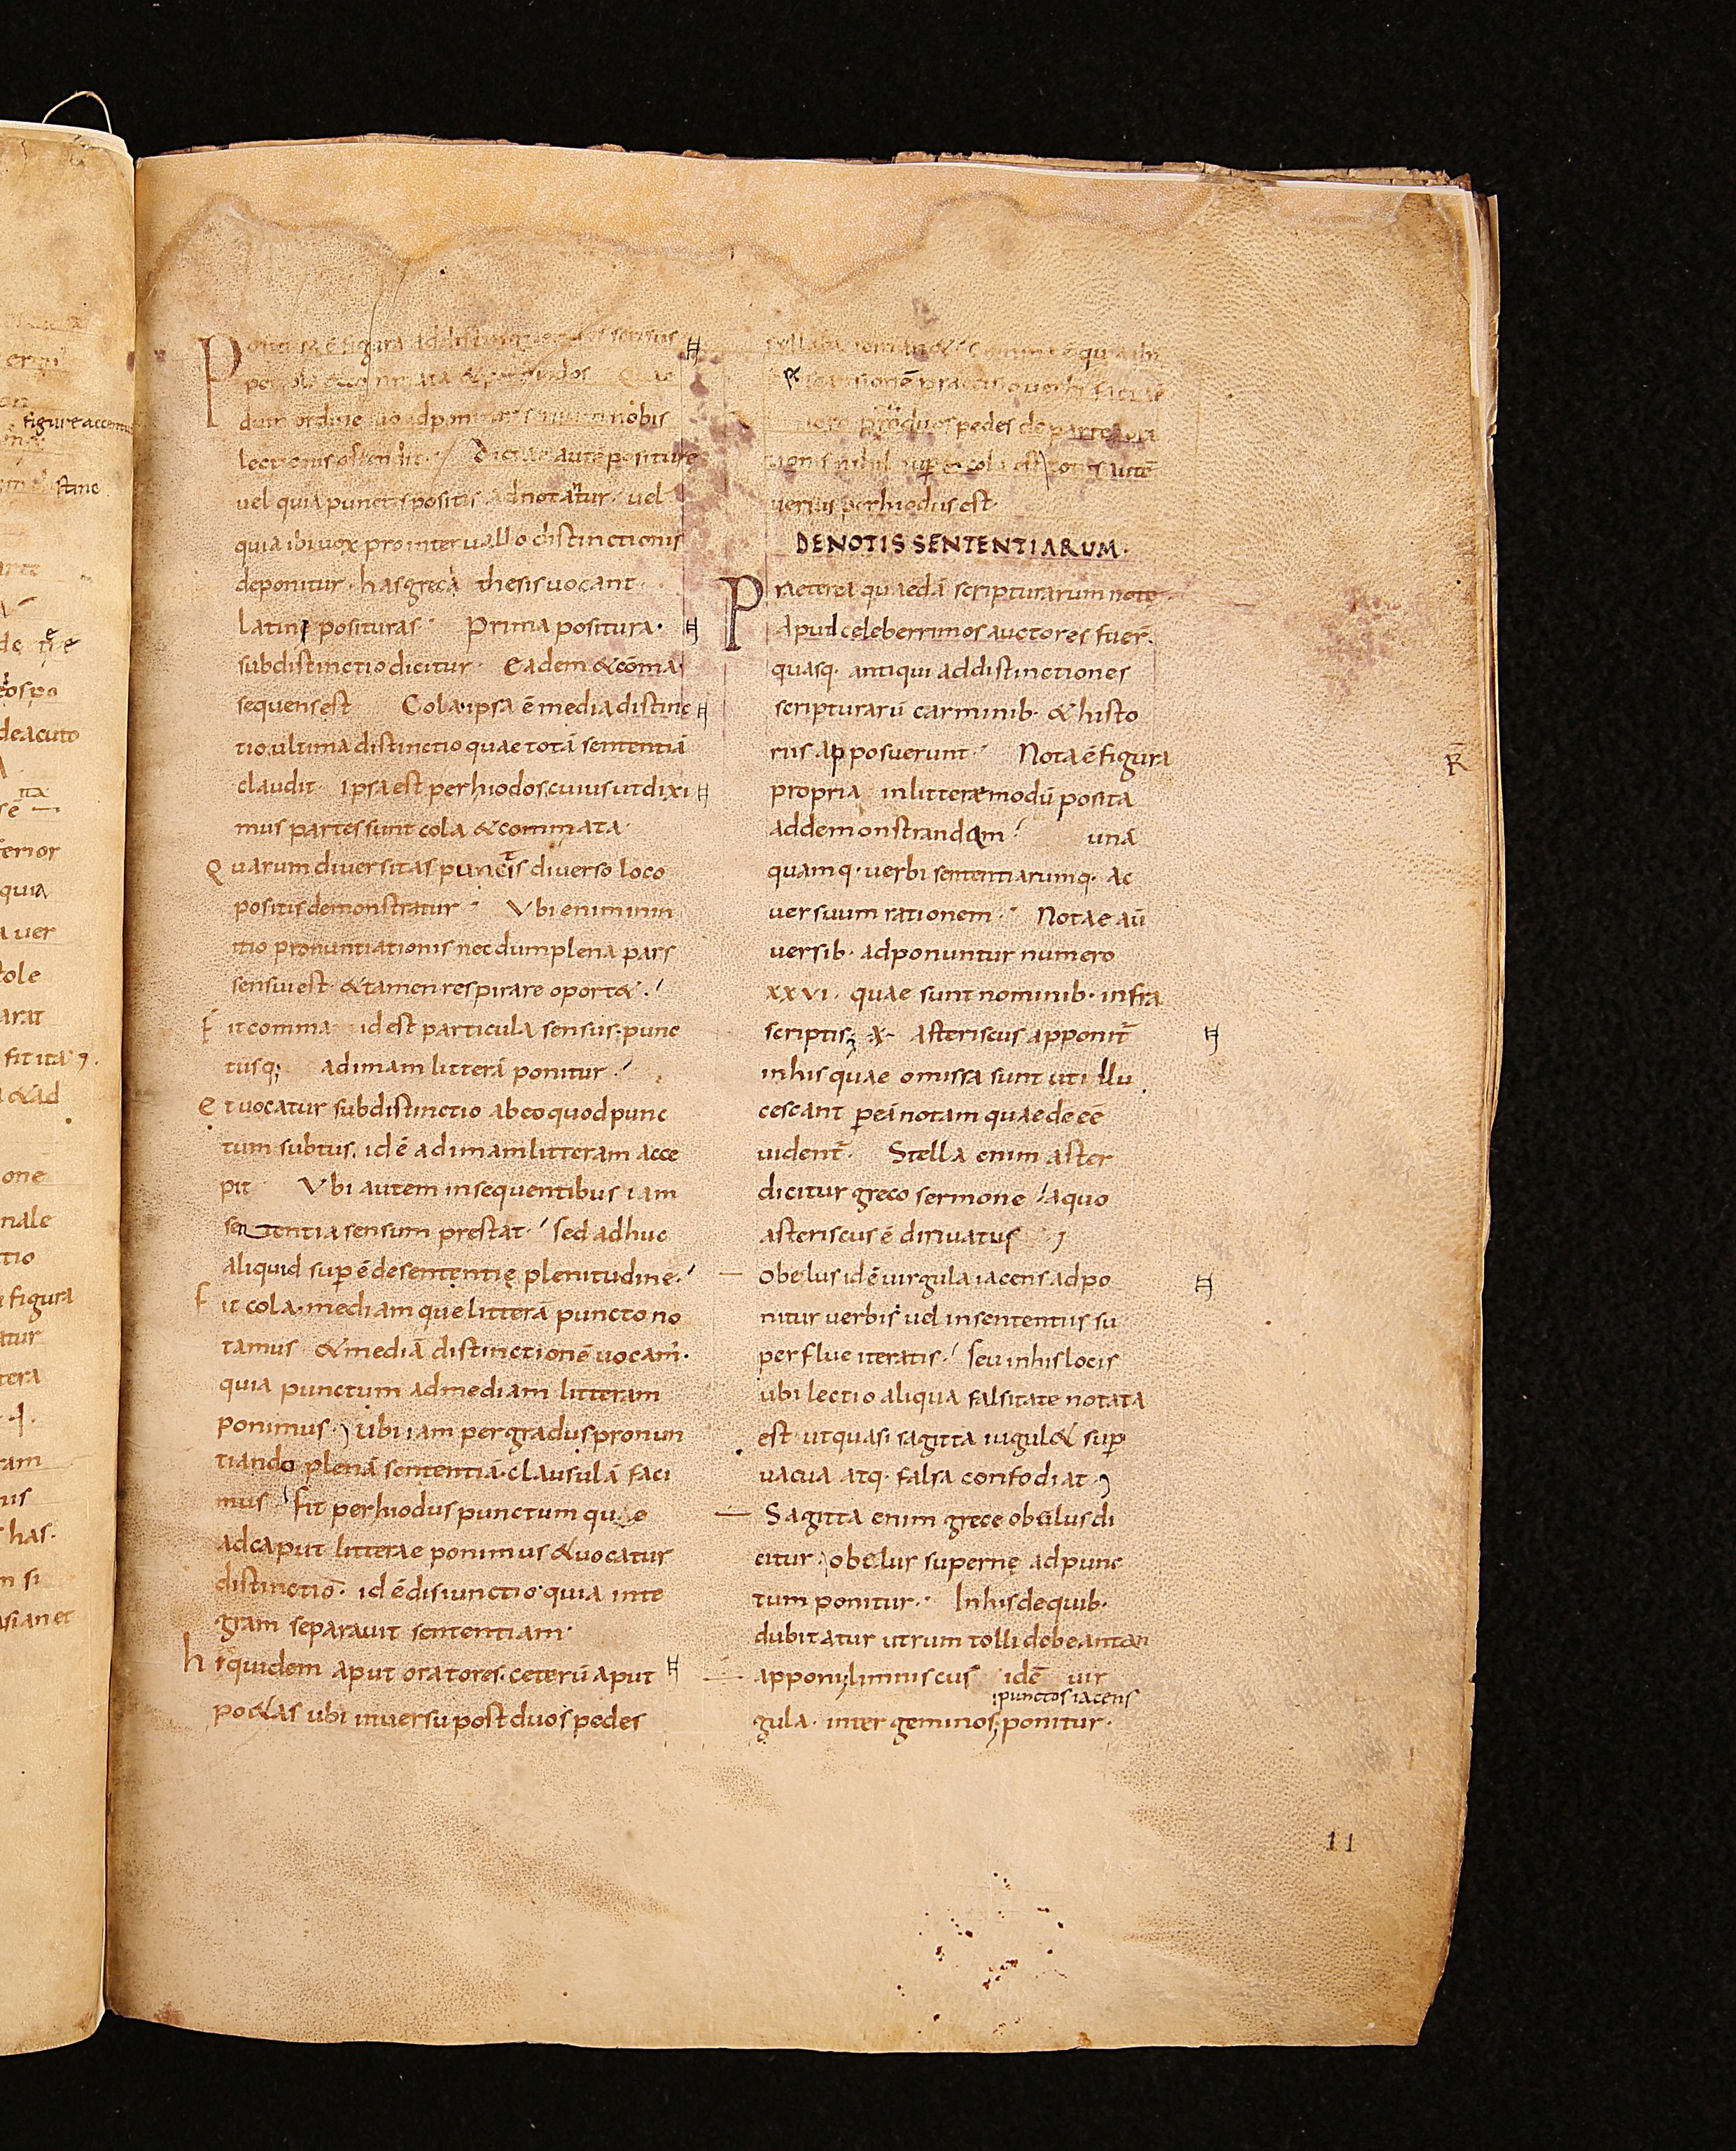 figure accentus
stinc
ergi
de
eospa
deacuto
ferior
quia
a ver
tole
arat
fit ita
&ad
one
nale
tio
figura
atur
tera
ram
nus
has·
n si
asianet
Positura ē figura addistinguendos sensus
per cola &commata &perhiodos Quae
dum ordine suo adponitur sensum nobis
lectionis ostendit· Dictae autē positure
vel quia punctis positis adnotatur vel
quia ibi vox pro intervallo distinctionis
deponitur· has greca thesis vocant·
latini posituras· Prima positura·
subdistinctio dicitur· Eadem &coma·
sequens est Cola·ipsa ē media distinc
tio·ultima distinctio quae totā sententiā
claudit· Ipsa est perhiodos cuius ut dixi
mus partes sunt cola &commata·
Quarum diversitas punctis diverso loco
positis demonstratur· Vbi enim inin
itio pronuntiationis necdum plena pars
sensui est &tamen respirare oport&·
Fit comma id est particula sensus·punc
tusq; ad imam litterā ponitur·
Et vocatur subdistinctio ab eo quod punc
tum subtus, id ē ad imam litteram acce
pit Vbi autem in sequentibus iam
sententia sensum prestat· sed adhuc
aliquid sup ē de sententię plenitudinē·
Fit cola·mediam que litterā puncto no
tamus &mediā distinctionē vocam·
quia punctum ad mediam litteram
ponimus· Ubi iam per gradus pronun
tiando plenā sententiā·clausulā faci
mus fit perhiodus punctum quae
ad caput litterae ponimus &vocatur
distinctio· id ē disiunctio·quia inte
gram separavit sententiam·
hęquidem aput oratores·ceterū aput
po&as ubi inversu post duos pedes
syllaba reman&
duos pedes de parte ora
tionis nihil sup totus autē
versus perhiodus est
DE NOTIS SENTENTIARUM·
Praeterea quaedā scripturarum note
Apud celeberrimos auctores fuer·
quasq· antiqui addistinctiones
scripturarū carminib· &histo
riis apposuerunt· Nota ē figura
R
propria in litterę modū posita
addemonstrandam unā
quamq·verbi sententiarumq· ac
versuum rationem· Notae aū
versib· adponuntur numero
xxvi· quae sunt nominib· infra
scriptis; asteriscus apponit
inhis quae omissa sunt uti illu
cescant p eā notam quae deeē
vident· Stella enim aster
dicitur greco sermone aquo
asteriscus ē dirivatus
— obelus id ē virgula iacens adpo
nitur verbis vel in sententiis su
perflue iteratis· seu inhis locis
ubi lectio aliqua falsitate notata
est ut quasi sagitta iugul& sup
vacua atq· falsa confodiat
— Sagitta enim grece obelus di
citur· obelus supernę adpunc
tum ponitur· Inhis de quib·
dubitatur utrum tolli debeant an
apponi; limniscus id ē vir
punctos iacens
gula· inter geminos ponitur·
11